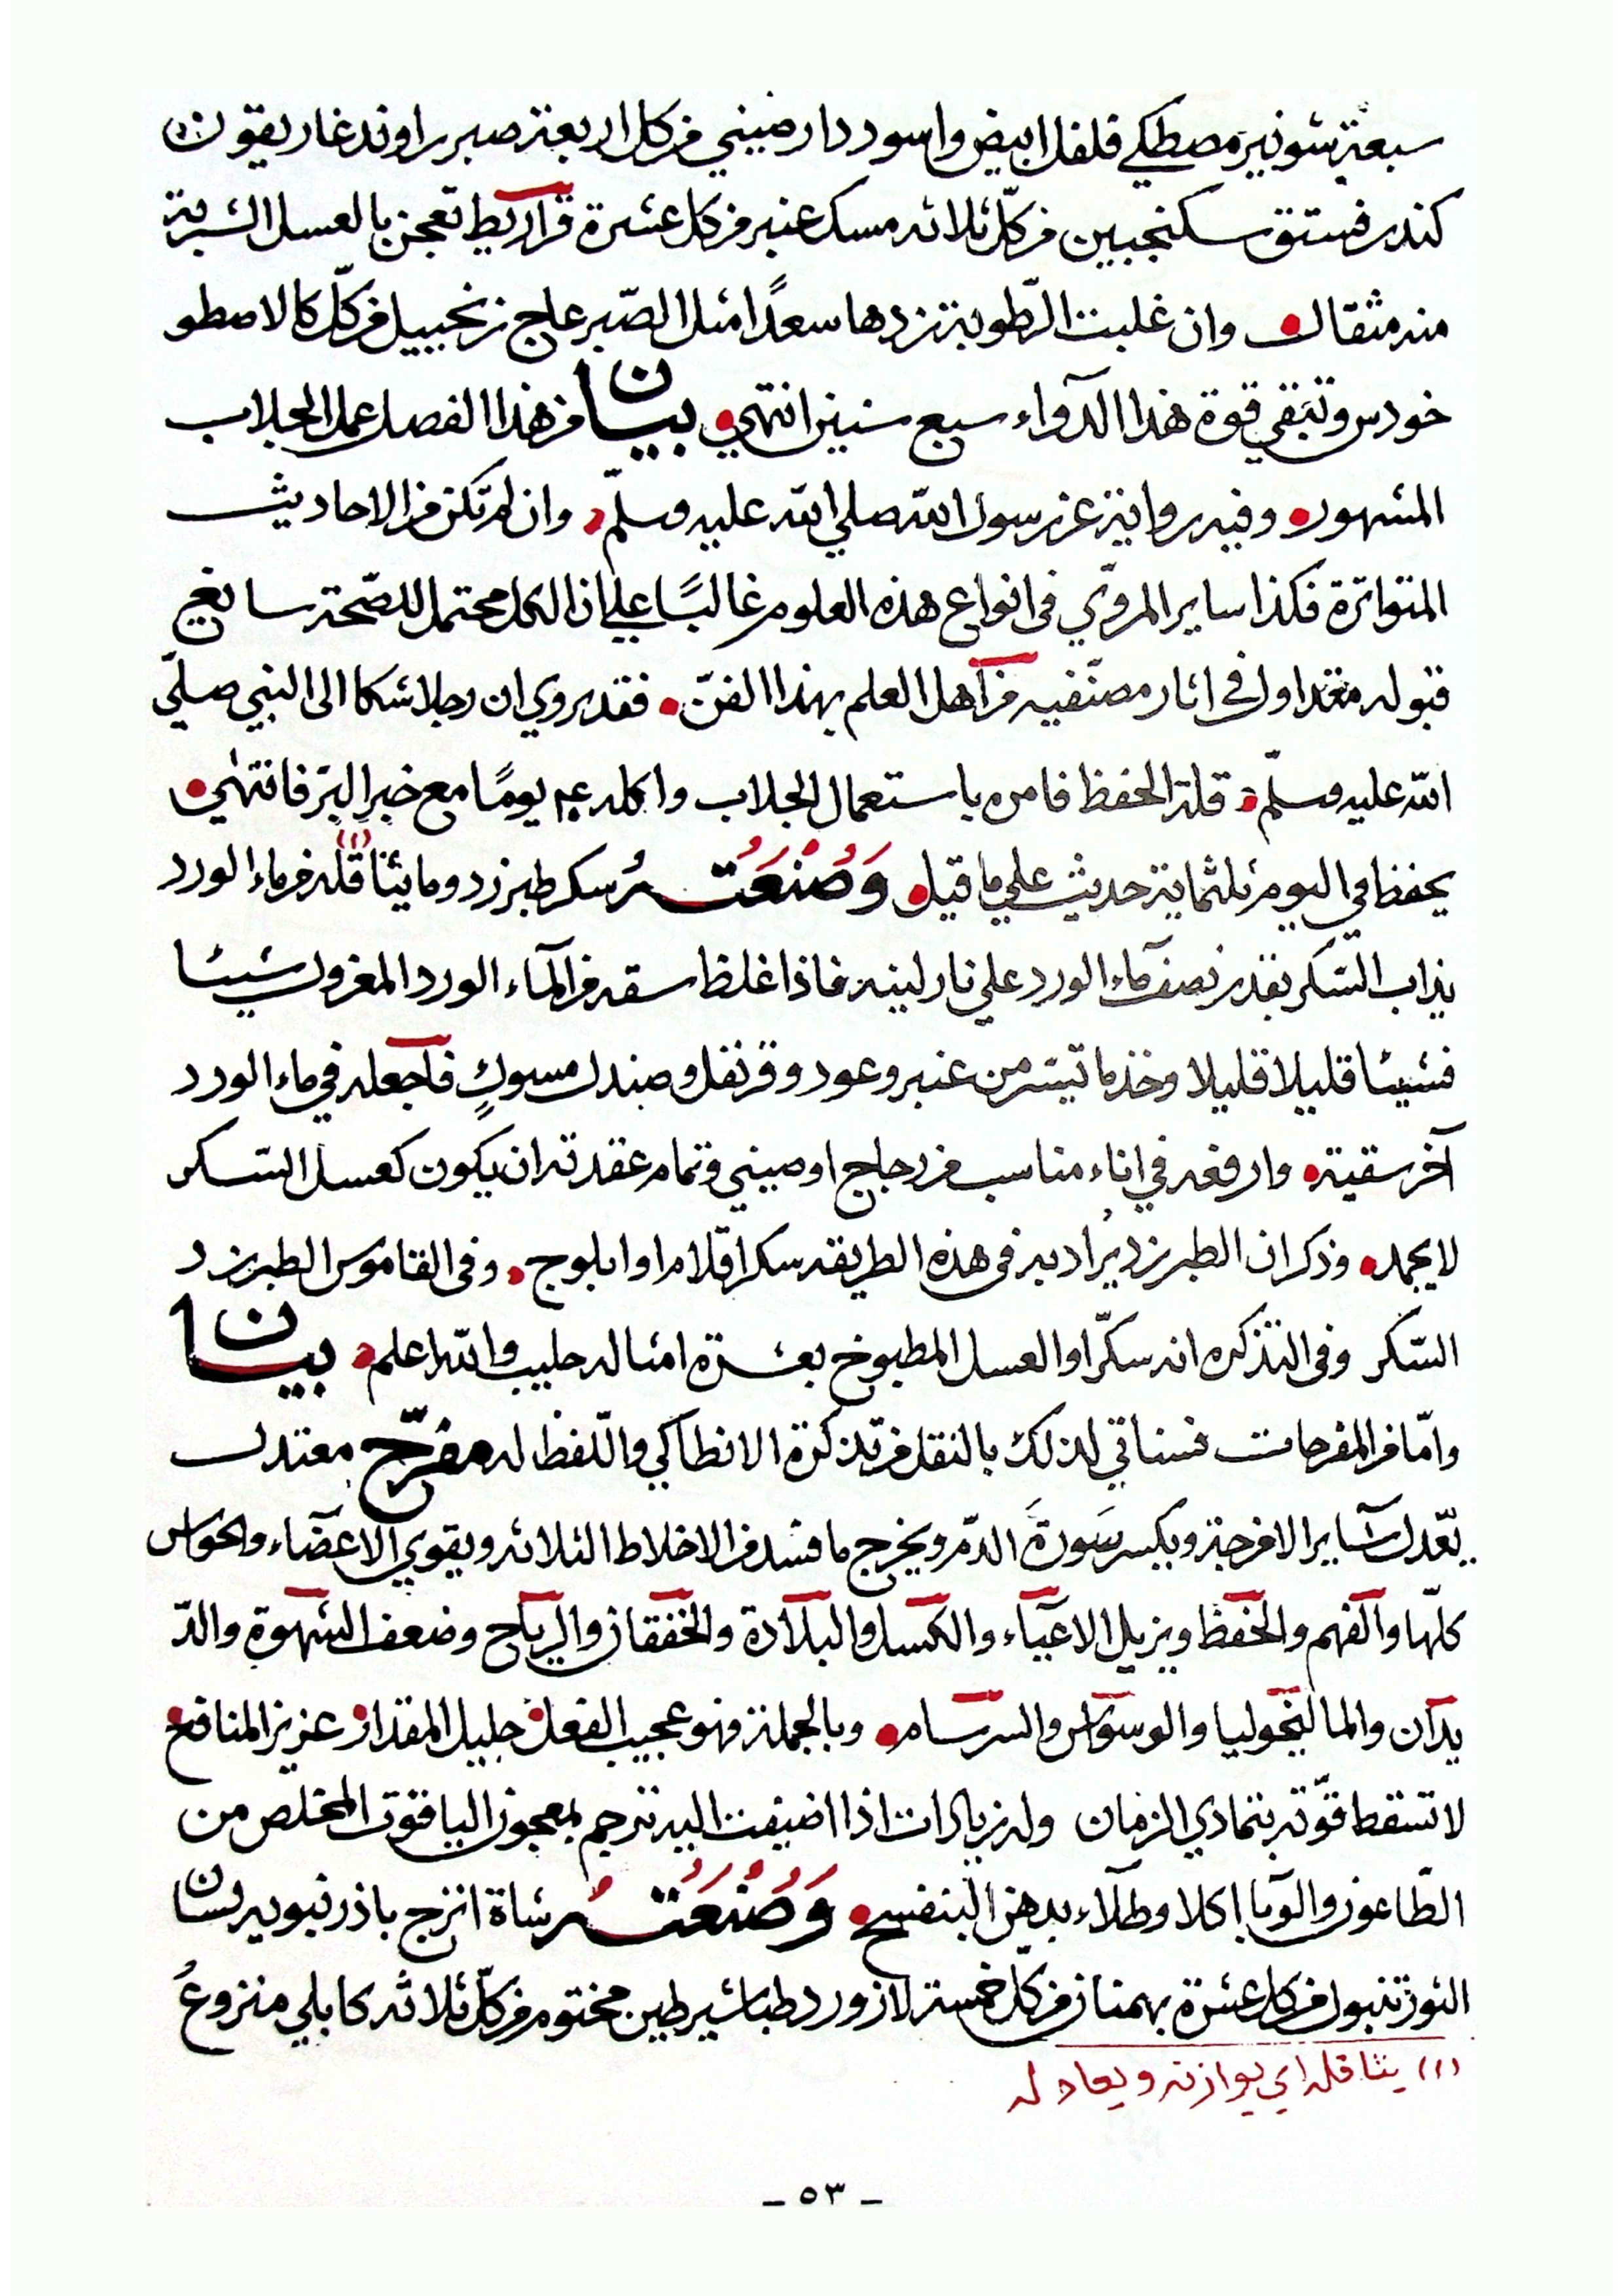 سبعة شونيز مصطكي فلفل ابيض واسود دار صيني من كل اربعة صبر راوند غاريقون
كندر فستق سكنجبين من كلّ ثلاثه مسك عنبر من كل عشرة قراريط تعجن بالعسل الشربة
منه مثقال وان غلبت الرّطوبة زدها سعدًا مثل الصّبر عاج زنجبيل من كلّ كالاصطو
خودس وتبقي قوة هذا الدوآء سبع سنين انتهي بيان من هذا الفصل عمل الجلاب
المشهور وفيه رواية عن رسول الله صلي الله عليه وسلّم وان لم تكن من الاحاديث
المتواترة فكذا ساير المرويّ في انواع هذه العلوم غالبًا علي ان الكل محتمل للصّحة سايغ
قبوله متداول في اثار مصنّفيه من اهل العلم بهذا الفنّ فقد روي ان رجلا شكا الى النبي صلّي
الله عليه وسلّم قلة الحفظ فامره باستعمال الجلاب واكله ٤٠ يومًا مع خبز البرّ فانتهٰي
يحفظ في اليوم ثلثماية حديث علي ما قيل وَصُنْعَتُه سكر طبرزد وما يثاقله (١) من ماء الورد
يذاب السّكر بقدر نصف ماء الورد علي نار لينه فاذا غلظ سقه من المآء الورد المعزول شيئا
فشيئا قليلا قليلا وخذ ما تيسّر من عنبر وعود وقرنفل وصندل مسبوكٍ فاجعله في ماء الورد
آخر سقية وارفعه في اناء مناسب من زجاج او صيني وتمام عقدته ان يكون كعسل السّكر
لا يجمد وذكر ان الطبرزد يُراد به في هذه الطريقه سكر اقلام او ابلوج وفى القاموس الطبرزد
السّكر وفى التذكره انه سكّر او العسل المطبوخ بعشرة امثاله حليب والله اعلم بيان
وامّا من المفرحات فسناتي لذلك بالنقل من تذكرة الانطاكي واللّفظ له مفرّح معتدل
يعّدل سآير الامزجة ويكسر سَورةَ الدّم ويخرج ما فسد من الاخلاط الثلاثه ويقوي الاعضآء والحواس
كلّها والفهم والحفظ ويزيل الاعيآء والكسل والبلادة والخفقان والرياح وضعف الشهوة والدّ
يدان والماليخوليا والوسواس والسرسام وبالجملة فهو عجيب الفعل جليل المقدار عزيز المنافع
لا تسقط قوّته بتمادي الزمان وله زيادات اذا اضيفت اليه ترجم بمعجون الياقوت المخلص من
الطّاعون والوبا اكلا وطلآء بدهن البنفسج وَصُنْعَتُه رشاة اترج باذرنبويه لسان
الثور تنبول من كل عشرة بهمنان من كلّ خمسة لازورد طباشير طين مختوم من كلّ ثلاثه كابلي منزوع
(١) يثاقله اي يوازنه ويعادله
– ٥٣ –